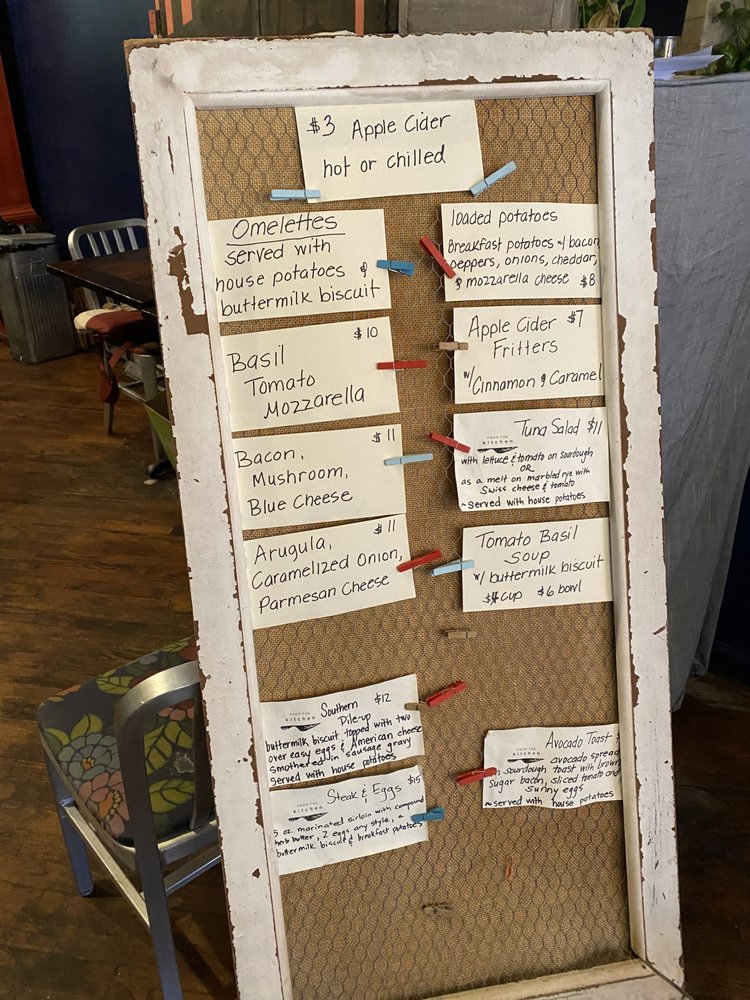 $3 Apple Cider
hot or chilled
Omelettes
served with
house potatoes &
buttermilk biscuit
$10
Basil
Tomato
Mozzarella
$11
Bacon,
Mushroom,
Blue Cheese
$11
Arugula,
Caramelized Onion,
Parmesan Cheese
FROM THE
kitchen
Southern $12
Pile-up
buttermilk biscuit topped with two
over easy eggs & American cheese
smothered in sausage gravy
served with house potatoes
FROM THE
kitchen
Steak & Eggs $15
5 oz. marinated sirloin with compound
herb butter, 2 eggs any style, a
buttermilk biscuit & breakfast potatoes
loaded potatoes
Breakfast potatoes w/ bacon,
peppers, onions, cheddar,
& mozzarella cheese $8
Apple Cider $7
Fritters
w/ Cinnamon & Caramel
FROM THE
kitchen
Tuna Salad $11
with lettuce & tomato on sourdough
OR
as a melt on marbled rye with
Swiss cheese & tomato
~served with house potatoes
Tomato Basil
Soup
w/ buttermilk biscuit
$4 cup $6 bowl
FROM THE
kitchen
Avocado Toast $
avocado spread
on sourdough toast with brown
sugar bacon, sliced tomato and
sunny eggs
~served with house potatoes